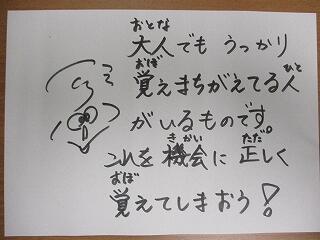 おとな
大人でも うっかり
おぼ ひと
覚えまちがえてる人
がいるものです。
きかい ただ
これを機会に 正しく
おぼ
覚えてしまおう!